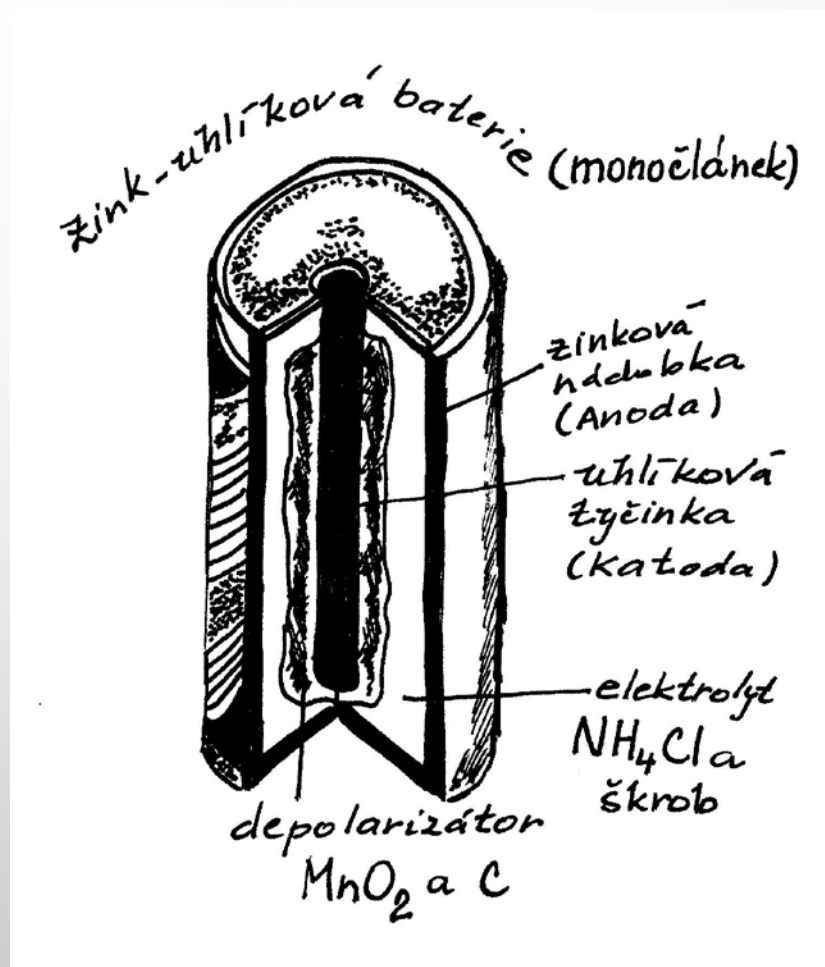 zink-uhlíková baterie (monočlánek)
zinková
nádobka
(Anoda)
uhlíková
tyčinka
(Katoda)
elektrolyt
NH₄Cl a
škrob
depolarizátor
MnO₂ a C